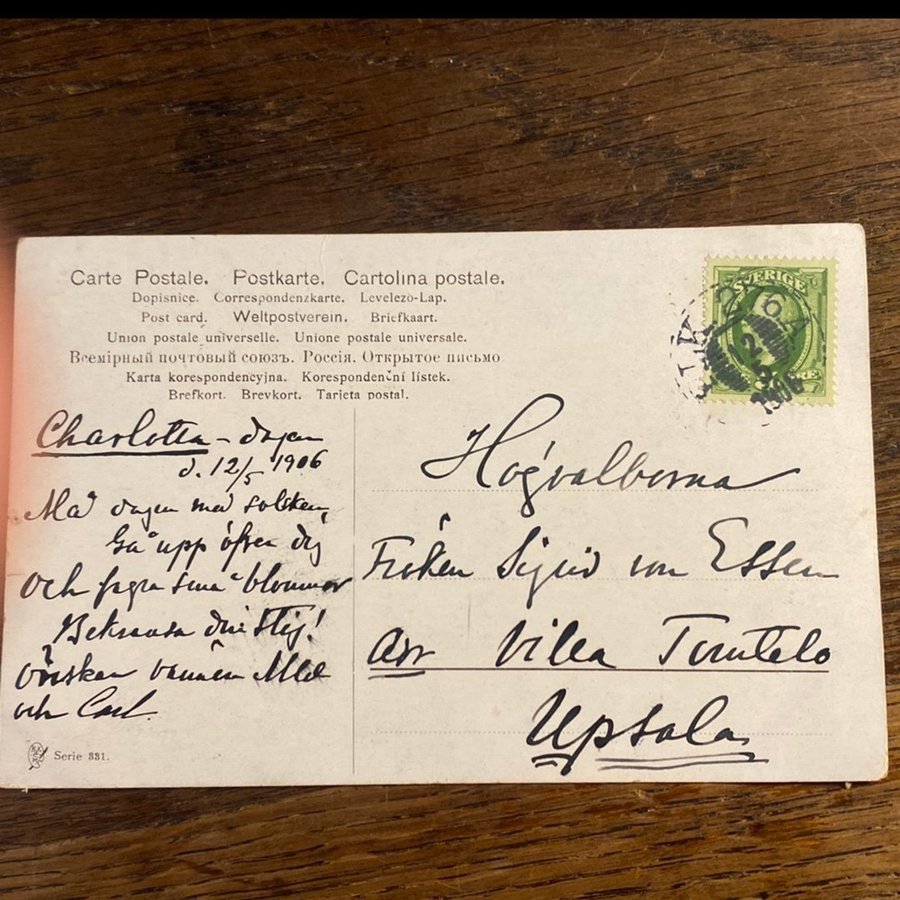 Carte Postale. Postkarte. Cartolina postale.
Dopisnice. Correspondenzkarte. Levelezo-Lap.
Post card. Weltpostverein. Briefkaart.
Union postale universelle. Unione postale universale.
Всемірный почтовый союзъ. Россія. Открытое письмо
Karta korespondencyjna. Korespondenční lístek.
Brefkort. Brevkort. Tarjeta postal.
SVERIGE
1906
Charlotta-dagen
d. 12/5 1906
Må dagen med solsken
Gå upp öfver dig
och fagra små blommor
Bekransa din stig!
önskar vännen
och Carl.
Serie 331.
Högvälborna
Fröken Sigrid von Essen
Adr Villa Tomtebo
Upsala